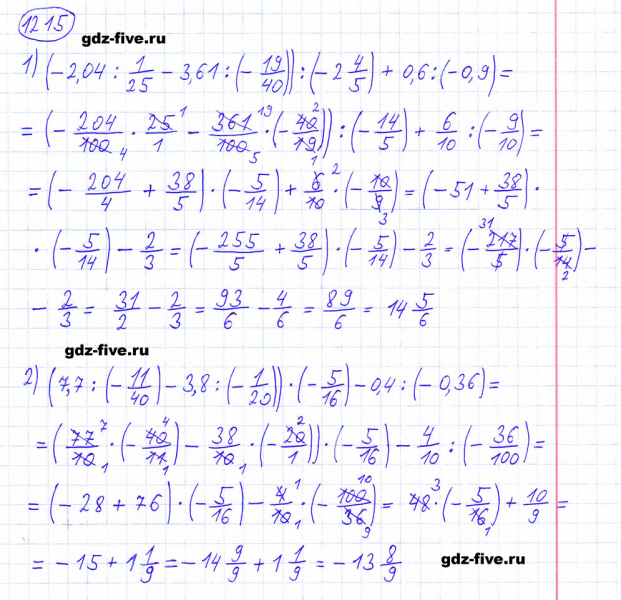 1215
gdz-five.ru
1) (-2,04 : 1/25 - 3,61 : (-19/40)) : (-2 4/5) + 0,6 : (-0,9) =
= (-204/100 4 · 25 1/1 - 361 19/100 5 · (-40 2/19 1)) : (-14/5) + 6/10 : (-9/10) =
= (-204/4 + 38/5) · (-5/14) + 6 2/10 · (-10/9 3) = (-51 + 38/5) ·
· (-5/14) - 2/3 = (-255/5 + 38/5) · (-5/14) - 2/3 = (-31 217/5) · (-5/14 2) -
- 2/3 = 31/2 - 2/3 = 93/6 - 4/6 = 89/6 = 14 5/6
gdz-five.ru
2) (7,7 : (-11/40) - 3,8 : (-1/20)) · (-5/16) - 0,4 : (-0,36) =
= (77 7/10 1 · (-40 4/11 1) - 38/10 1 · (-20 2/1)) · (-5/16) - 4/10 : (-36/100) =
= (-28 + 76) · (-5/16) - 4 1/10 1 · (-100 10/36 9) = 48 3 · (-5/16 1) + 10/9 =
= -15 + 1 1/9 = -14 9/9 + 1 1/9 = -13 8/9
gdz-five.ru